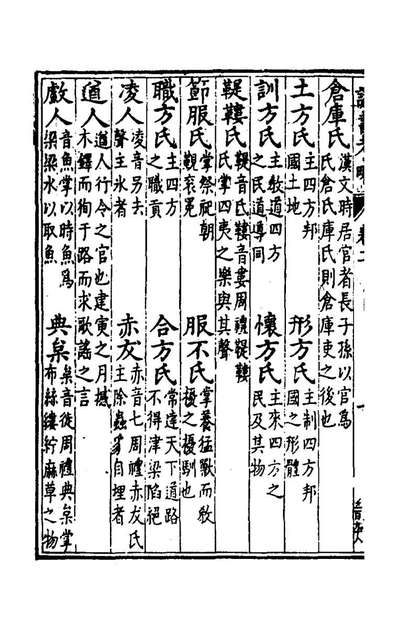 倉庫氏 漢文時居官者長子孫以官爲
氏倉氏庫氏則倉庫吏之後也
土方氏 主四方邦
國土地
形方氏 主制四方邦
國之形體
訓方氏 主敎道四方
之民道導同
懷方氏 主來四方之
民及其物
鞮鞻氏 鞮音氐鞻音婁周禮鞮鞻
氏掌四夷之樂與其聲
節服氏 掌祭祀朝
覲衮冕
服不氏 掌養猛獸而敎
擾之擾馴也
職方氏 主四方
之職貢
合方氏 常達天下道路
不得津梁陷絕
凌人 凌音另去
聲主氷者
赤犮 赤音七周禮赤犮氏
主除蟲豸自埋者
遒人 遒人行令之官也建寅之月
木鐸而徇于路而求歌謠之言
䱷人 音魚掌以時魚爲
梁梁水以取魚
典枲 枲音徙周禮典枲掌
布緦縷紵麻草之物